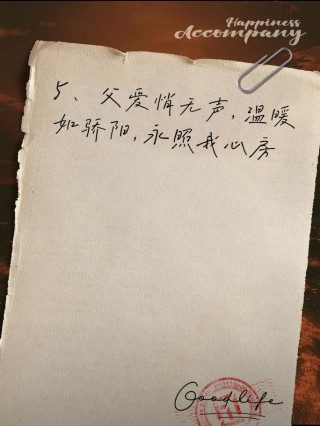 Happiness
Accompany
5、父爱悄无声，温暖
如骄阳，永照我心房
Goodlife